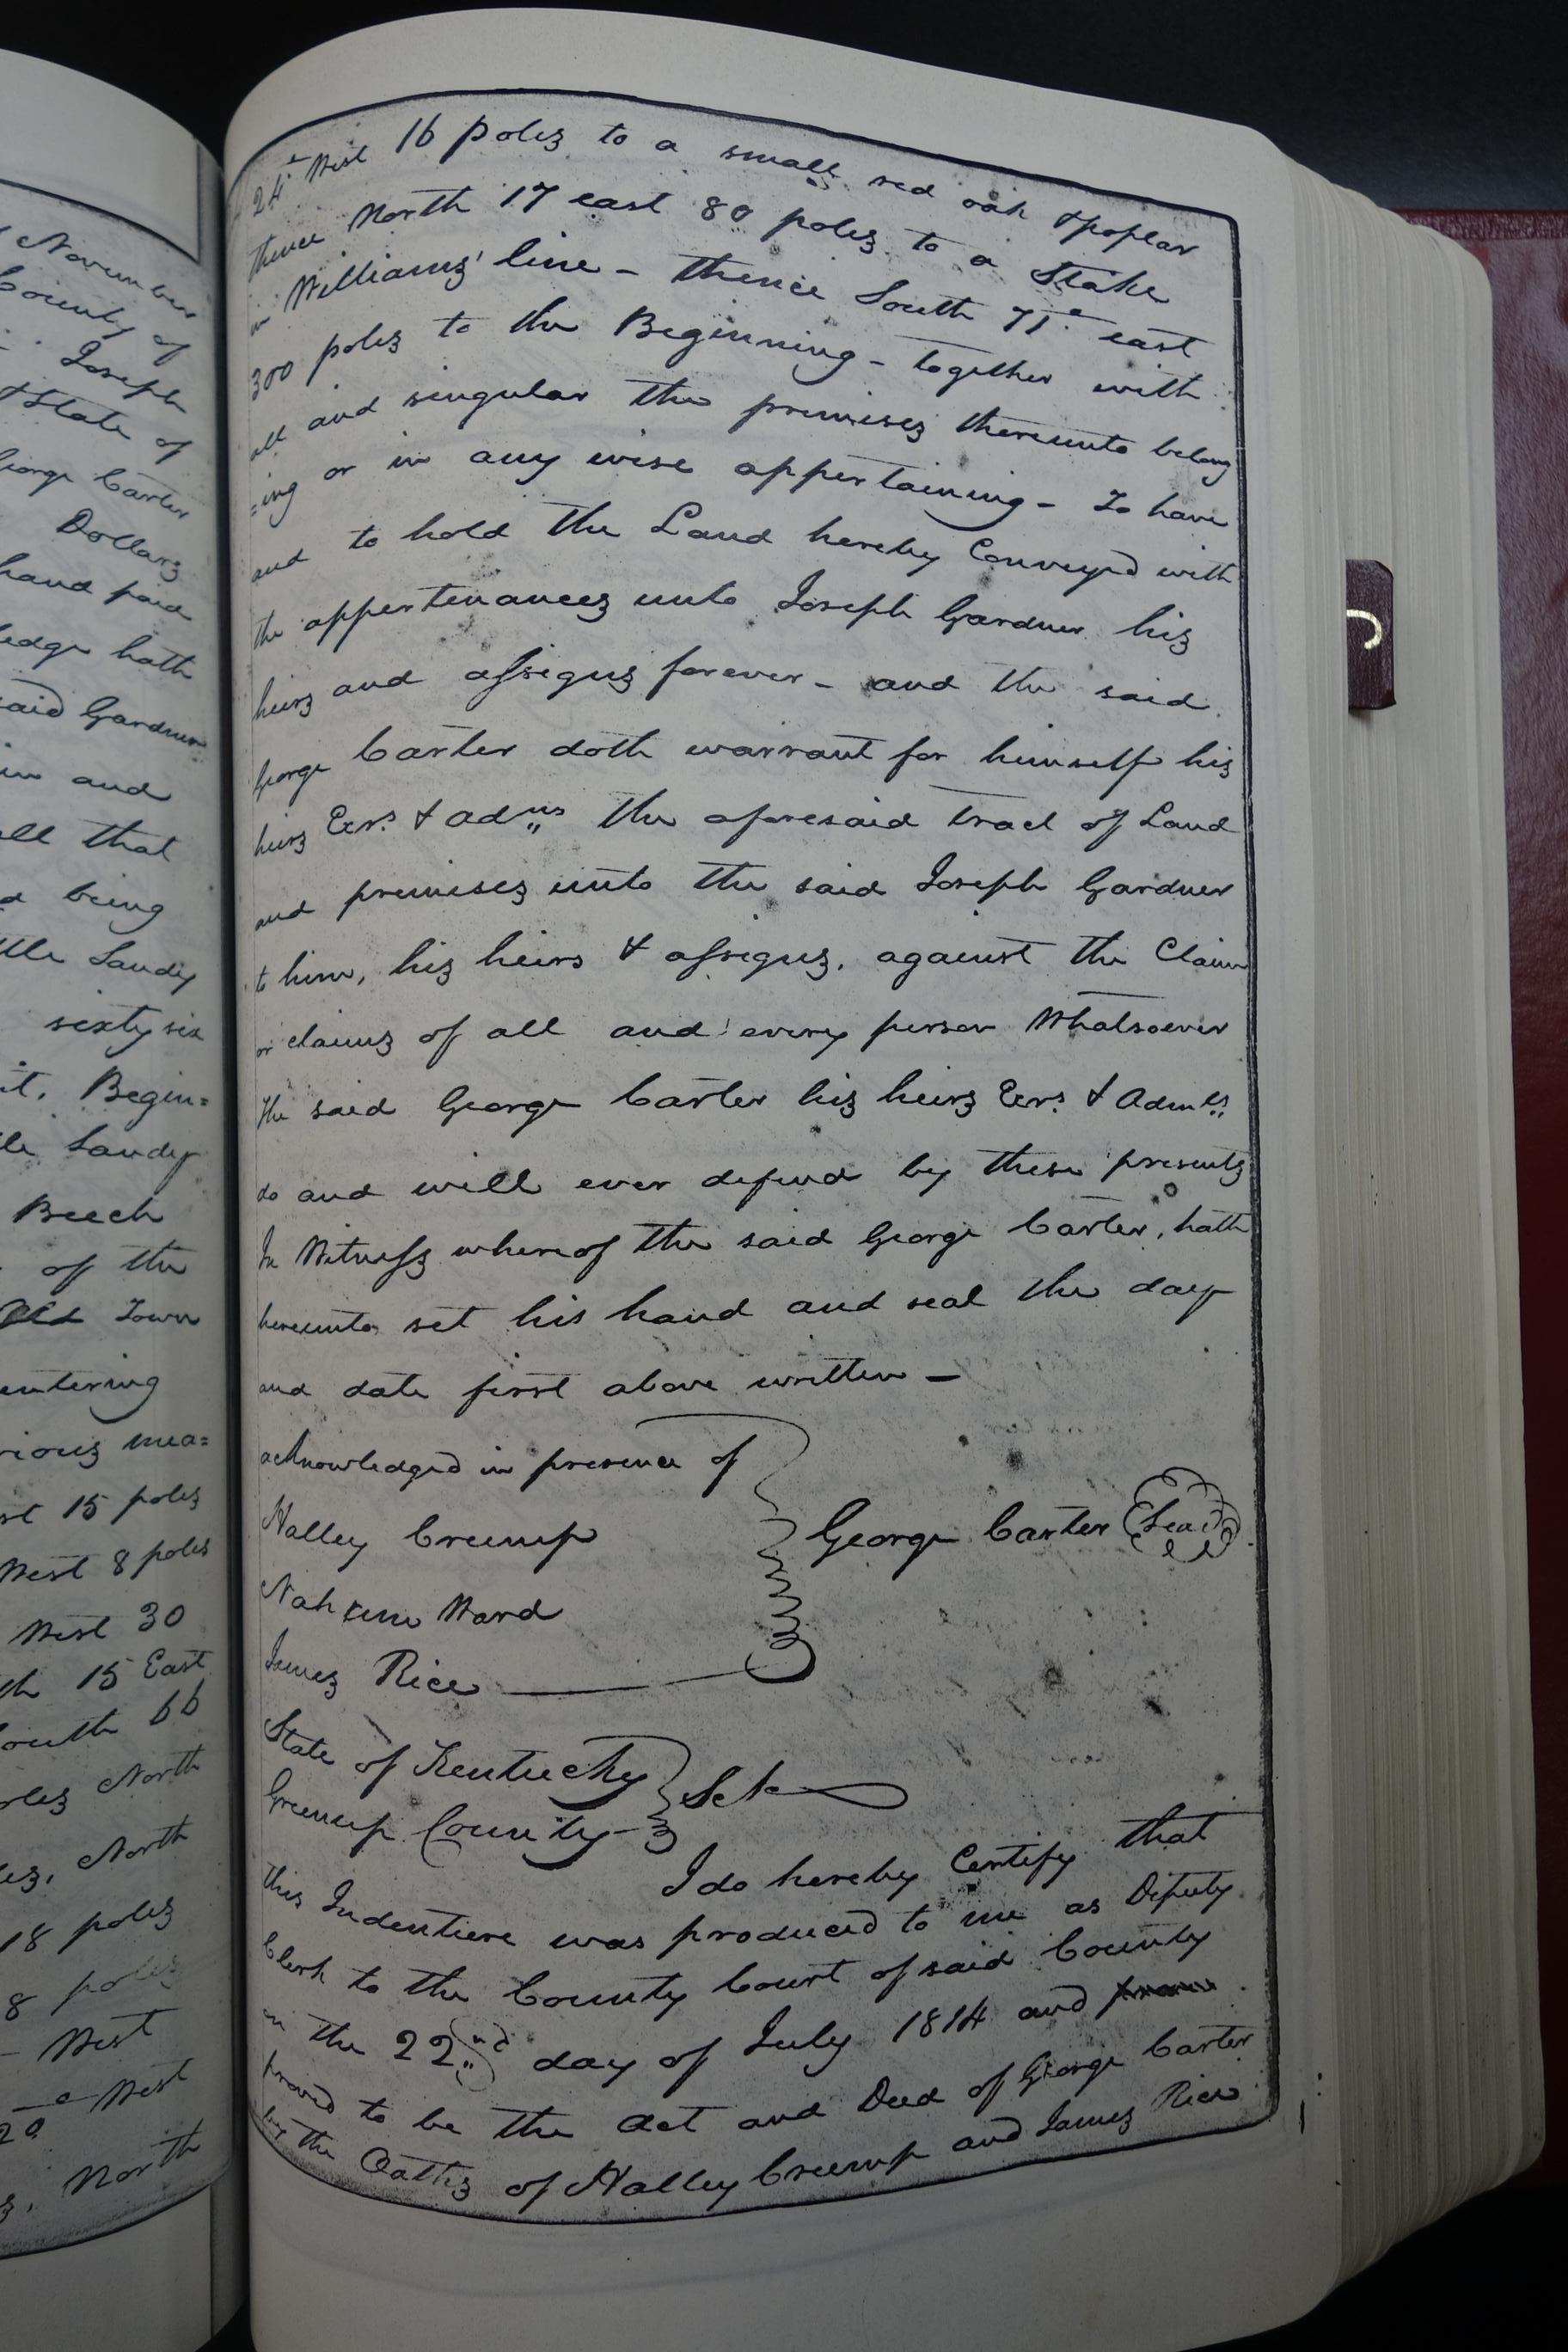 November
County of
Joseph
& State of
George Carter
Dollars
hand paid
ledge hath
said Gardner
in and
all that
d being
ttle Sandy
sixty six
it. Begin=
le Sandy
Beech
of the
Old Town
entering
rious mea=
st 15 poles
West 8 poles
West 30
th 15 East
outh 66
oles North
les, North
18 poles
8 poles
- West
20 West
s, North
24° West 16 poles to a small red oak & poplar
thence North 17 east 80 poles to a Stake
in Williams' line - thence South 71° east
300 poles to the Beginning - together with
all and singular the premises thereunto belong
=ing or in any wise appertaining - To have
and to hold the Land hereby Conveyed with
the appertenances unto Joseph Gardner his
heirs and assigns forever - and the said
George Carter doth warrant for himself his
heirs Exrs. & adms the aforesaid tract of Land
and premises unto the said Joseph Gardner
to him, his heirs & assigns, against the Claim
or claims of all and every person Whatsoever
the said George Carter his heirs Exrs. & Admrs.
do and will ever defend by these presents
In Witness whereof the said George Carter, hath
hereunto set his hand and seal the day
and date first above written -
acknowledged in presence of
Halley Crump
George Carter (Seal)
Nahum Ward
James Rice
State of Kentucky
Greenup County
Sct
I do hereby Certify that
this Indenture was produced to me as Deputy
Clerk to the County Court of said County
on the 22nd day of July 1814 and
proved to be the Act and Deed of George Carter
by the Oaths of Halley Crump and James Rice